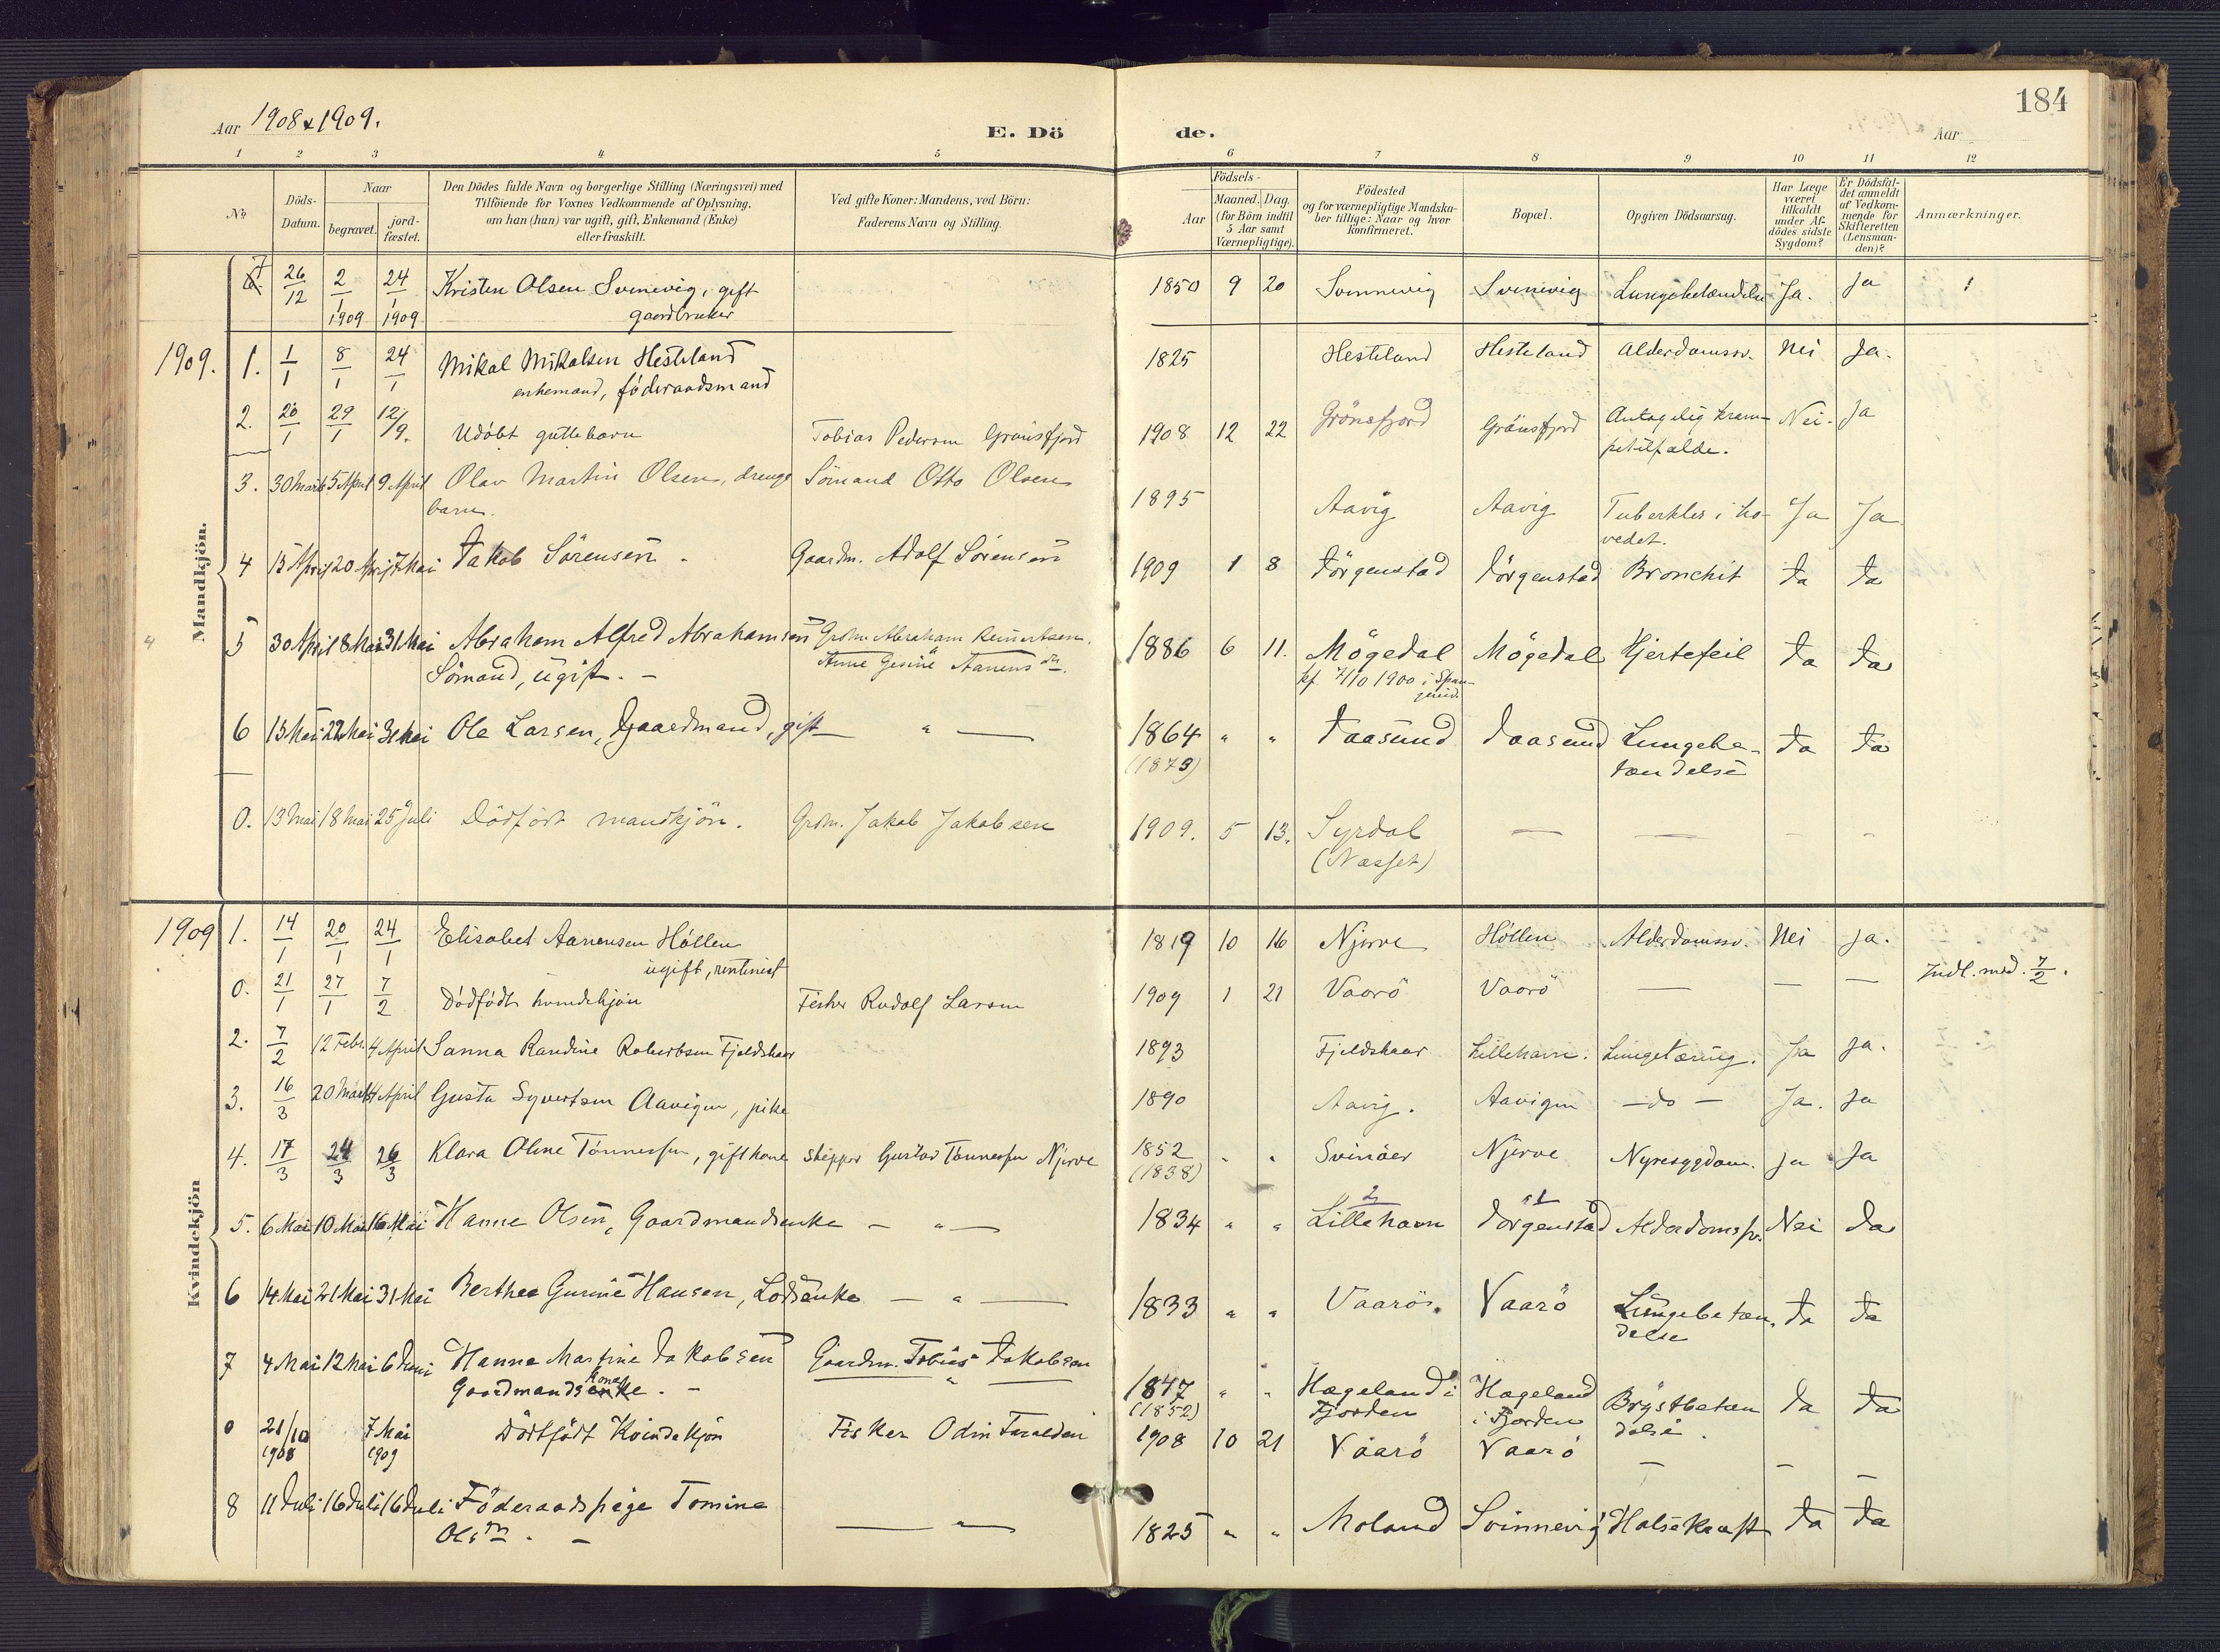 184
Aar 1908 & 1909.
E. Dö de.
Aar
1 2 3 4 5 6 7 8 9 10 11 12
No
Döds-Datum.
Naar
begravet.
jord-fæstet.
Den Dödes fulde Navn og borgerlige Stilling (Næringsvei) med
Tilföiende for Voxnes Vedkommende af Oplysning,
om han (hun) var ugift, gift, Enkemand (Enke)
eller fraskilt.
Ved gifte Koner: Mandens, ved Börn:
Faderens Navn og Stilling.
Födsels-
Aar
Maaned. Dag.
(for Börn indtil
5 Aar samt
Værnepligtige).
Födested
og for værnepligtige Mandska-
ber tillige: Naar og hvor
konfirmeret.
Bopæl.
Opgiven Dödsaarsag.
Har Læge
været
tilkaldt
under Af-
dödes sidste
Sygdom?
Er Dödsfal-
det anmeldt
af Vedkom-
mende for
Skifteretten
(Lensman-
den)?
Anmærkninger.
7 26/12 2/1 1909 24/1 1909 Kristen Olsen Svinevig, gift 1850 9 20 Svinnevig Svinevig Lungebetændelse Ja. Ja
gaardbruker
1909.
Mandkjön.
1. 1/1 8/1 24/1 Mikal Mikalsen Hesteland 1825 Hesteland Hesteland Alderdomssv. Nei Ja.
enkemand, föderaadsmand
2. 26/1 29/1 12/9. Udöbt guttebarn Tobias Pedersen Grönsfjord 1908 12 22 Grönsfjord Grönsfjord Antagelig kram- Nei. Ja
petilfælde.
3. 30 Marts 5 April 9 April Olav Martin Olsen, drenge Sömand Otto Olsen 1895 Aavig Aavig Tuberkler i ho- Ja Ja
barn. vedet.
4 15 April 20 April 7 Mai Jakob Sörensen. Gaardm. Adolf Sörensen 1909 1 8 Jörgenstad Jörgenstad Bronchit Ja Ja
5 30 April 8 Mai 31 Mai Abraham Alfred Abrahamsen Grdm. Abraham Reinertsen, 1886 6 11. Mögedal Mögedal Hjertefeil Ja Ja
Sömand, ugift. - Anne Gesine Aanens dtr. kf. 7/10 1900 i Span-
gereid.
6 15 Mai 22 Mai 31 Mai Ole Larsen, Gaardmand, gift — " — 1864 " " Jaasund Jaasund Lungebe- Ja Ja
(1873) tændelse
0. 13 Mai 18 Mai 25 Juli Dödfödt mandkjön. Grdm. Jakob Jakobsen 1909. 5 13. Syrdal — — - -
(Næsset)
1909
Kvindekjön
1. 14/1 20/1 24/1 Elisabet Aanensen Höllen 1819 10 16 Njerve Höllen Alderdomssv. Nei Ja.
ugift, rentenist
0. 21/1 27/1 7/2 Dödfödt kvindekjön Fisker Rudolf Larsen 1909 1 21 Vaarö Vaarö — — — Indl. med. 7/2.
2. 7/2 12 Febr. 4 April Sanna Randine Robertsen Fjeldskaar 1893 Fjeldskaar Lillehavn. Lungetæring. Ja Ja.
3. 16/3 20 Marts 4 April Gusta Syvertsen Aavigen, pike 1890 Aavig. Aavigen — do — Ja. Ja
4. 17/3 24/3 26/3 Klara Oline Tönnessen, gift kone skipper Gustav Tönnessen Njerve 1852 " " Svinöer Njerve Nyresygdom. Ja Ja
(1838)
5. 6 Mai 10 Mai 16 Mai Hanne Olsen, Gaardmandsenke — " — 1834 " " Lillehavn Jörgenstad Alderdomssv. Nei Ja
6 14 Mai 21 Mai 31 Mai Berthe Gurine Hansen, Lodsenke — " — 1833 " " Vaarö. Vaarö Lungebetæn- Ja Ja
delse
7 4 Mai 12 Mai 6 Juni Hanne Martine Jakobsen Gaardm. Tobias Jakobsen 1847 " " Hægeland i Hægeland Brystbetæn Ja Ja
Gaardmands enke kone. - " (1852) Fjorden i Fjorden delse.
0 21/10 1908 7 Mai 1909 Dödfödt Kvindekjön Fisker Odin Taraldsen 1908 10 21 Vaarö Vaarö — — —
8 11 Juli 16 Juli 16 Juli Föderaadspige Tomine — " — 1825 " " Moland Svinnevig Halsekræft Ja Ja
Olsdtr. -